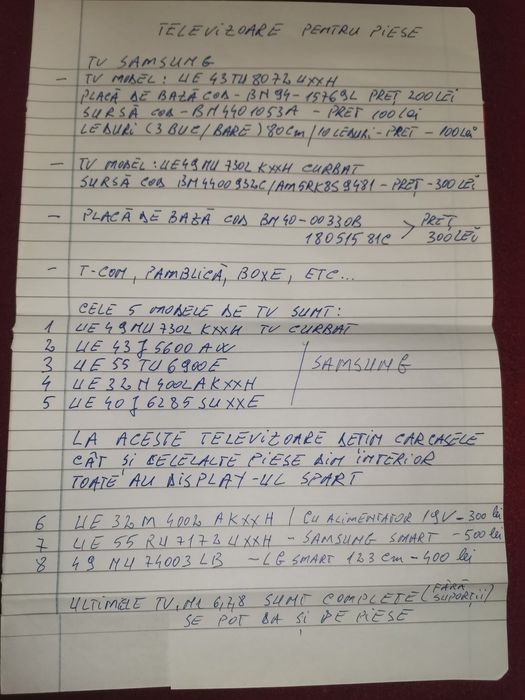 TELEVIZOARE PENTRU PIESE
TV SAMSUNG
- TV MODEL: UE 43 TU 8072 UXXH
PLACĂ DE BAZĂ COD - BN94-15769L PREȚ 200 LEI
SURSĂ COD - BN4401053A - PREȚ 100 LEI
LEDURI (3 BUC/BARE) 80cm/10 LEDURI - PREȚ - 100 Lei
- TV MODEL: UE49 MU 730L KXXH CURBAT
SURSĂ COD BN4400932C/AM5RK8S9481 - PREȚ - 300 LEI
- PLACĂ DE BAZĂ COD BN40-00330B > PREȚ
180515 81C 300 LEI
- T-CON, PAMBLICĂ, BOXE, ETC...
CELE 5 MODELE DE TV SUNT:
1 UE 49 MU 730L KXXH TV CURBAT
2 UE 43 J 5600 AW
3 UE 55 TU 6900E | SAMSUNG
4 UE 32 M 400L AKXXH
5 UE 40 J 6285 SUXXE
LA ACESTE TELEVIZOARE DETIN CARCASELE
CÂT ȘI CELELALTE PIESE DIN INTERIOR
TOATE AU DISPLAY-UL SPART
6 UE 32 M 4002 AKXXH / CU ALIMENTATOR 19V - 300 lei
7 UE 55 RU 7172 UXXH - SAMSUNG SMART - 500 lei
8 49 NU 74003 LB - LG SMART 123 cm - 400 lei
ULTIMELE TV, N1 6,7,8 SUNT COMPLETE (FĂRĂ SUPORȚII)
SE POT DA ȘI DE PIESE